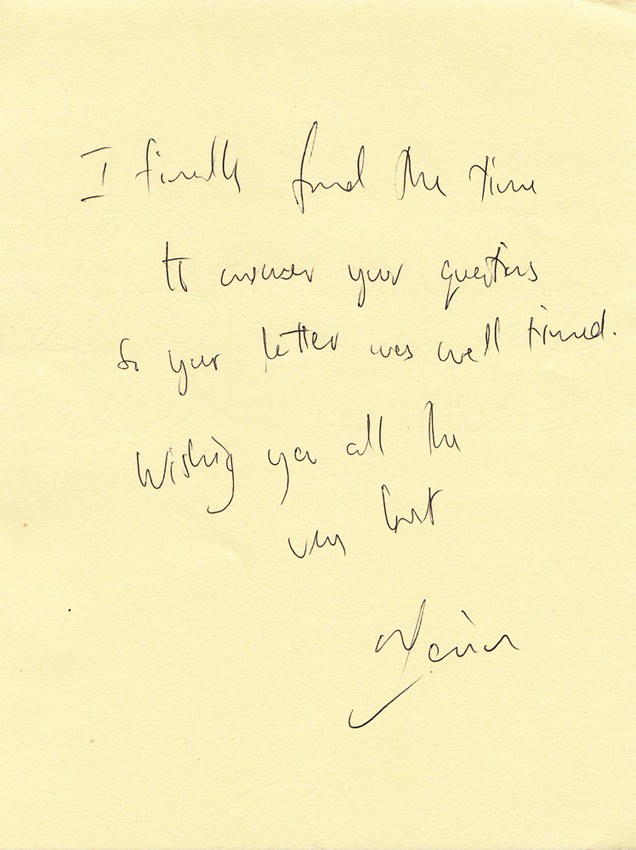 I finally found the time
to answer your questions
So your letter was well timed.
Wishing you all the
very best